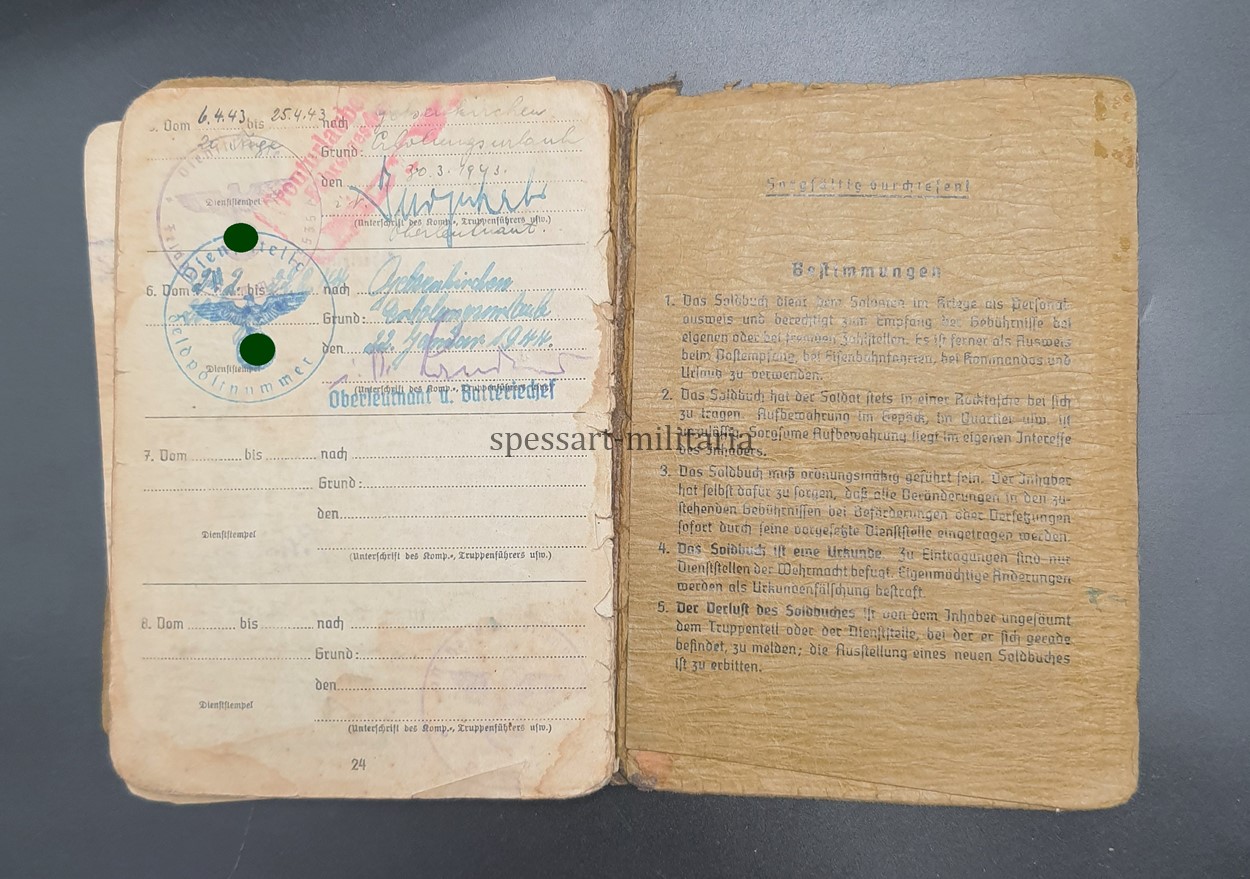 5. Vom 6.4.43 bis 25.4.43 nach
Grund: Erholungsurlaub
den 30.3.1943.
Dienststempel
(Unterschrift des Komp.-, Truppenführers usw.)
Oberleutnant.
Dienststelle
Feldpostnummer
6. Vom bis nach
Grund: Erholungsurlaub
den 22. Januar 1944.
Dienststempel
(Unterschrift des Komp.-, Truppenführers usw.)
Oberleutnant u. Batteriechef
7. Vom bis nach
Grund:
den
Dienststempel
(Unterschrift des Komp.-, Truppenführers usw.)
8. Vom bis nach
Grund:
den
Dienststempel
(Unterschrift des Komp.-, Truppenführers usw.)
24
spessart-militaria
Sorgfältig durchlesen!
Bestimmungen
1. Das Soldbuch dient dem Soldaten im Kriege als Personal-
ausweis und berechtigt zum Empfang der Gebührnisse bei
eigenen oder bei fremden Zahlstellen. Es ist ferner als Ausweis
beim Postempfang, bei Eisenbahnfahrten, bei Kommandos und
Urlaub zu verwenden.
2. Das Soldbuch hat der Soldat stets in einer Rocktasche bei sich
zu tragen. Aufbewahrung im Gepäck, im Quartier usw. ist
unzulässig. Sorgsame Aufbewahrung liegt im eigenen Interesse
des Inhabers.
3. Das Soldbuch muß ordnungsmäßig geführt sein. Der Inhaber
hat selbst dafür zu sorgen, daß alle Veränderungen in den zu-
stehenden Gebührnissen bei Beförderungen oder Versetzungen
sofort durch seine vorgesetzte Dienststelle eingetragen werden.
4. Das Soldbuch ist eine Urkunde. Zu Eintragungen sind nur
Dienststellen der Wehrmacht befugt. Eigenmächtige Änderungen
werden als Urkundenfälschung bestraft.
5. Der Verlust des Soldbuches ist von dem Inhaber ungesäumt
dem Truppenteil oder der Dienststelle, bei der er sich gerade
befindet, zu melden; die Ausstellung eines neuen Soldbuches
ist zu erbitten.